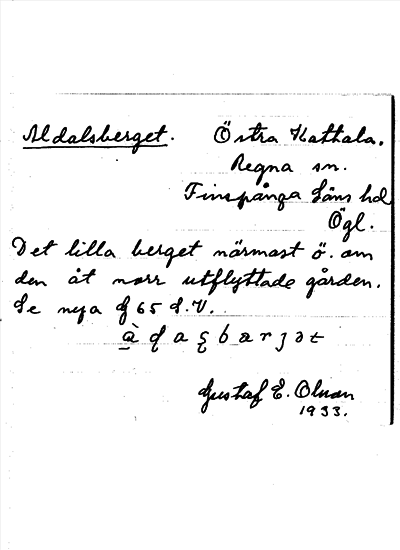 Aldalsberget. Östra Kattala.
Regna sn.
Finspånga läns hd
Ögl.
Det lilla berget närmast ö. om
den åt norr utflyttade gården.
Se nya 65 S.V.
Gustaf E. Olsson
1933.